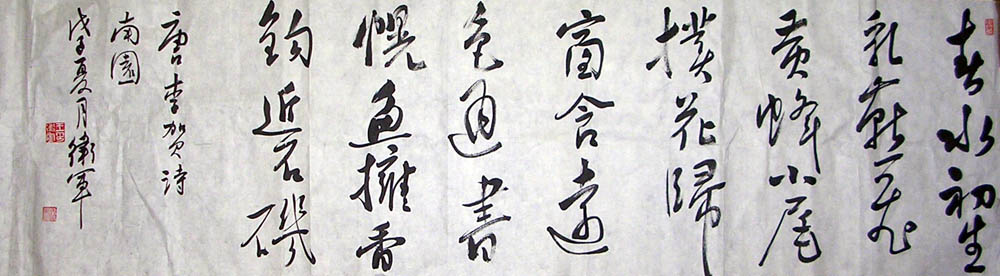 春水初生
乳燕飛
黄蜂小尾
撲花歸
窗含遠
色通書
幌魚擁香
鈎近石磯
唐李賀詩
南園
戊子夏月衛軍